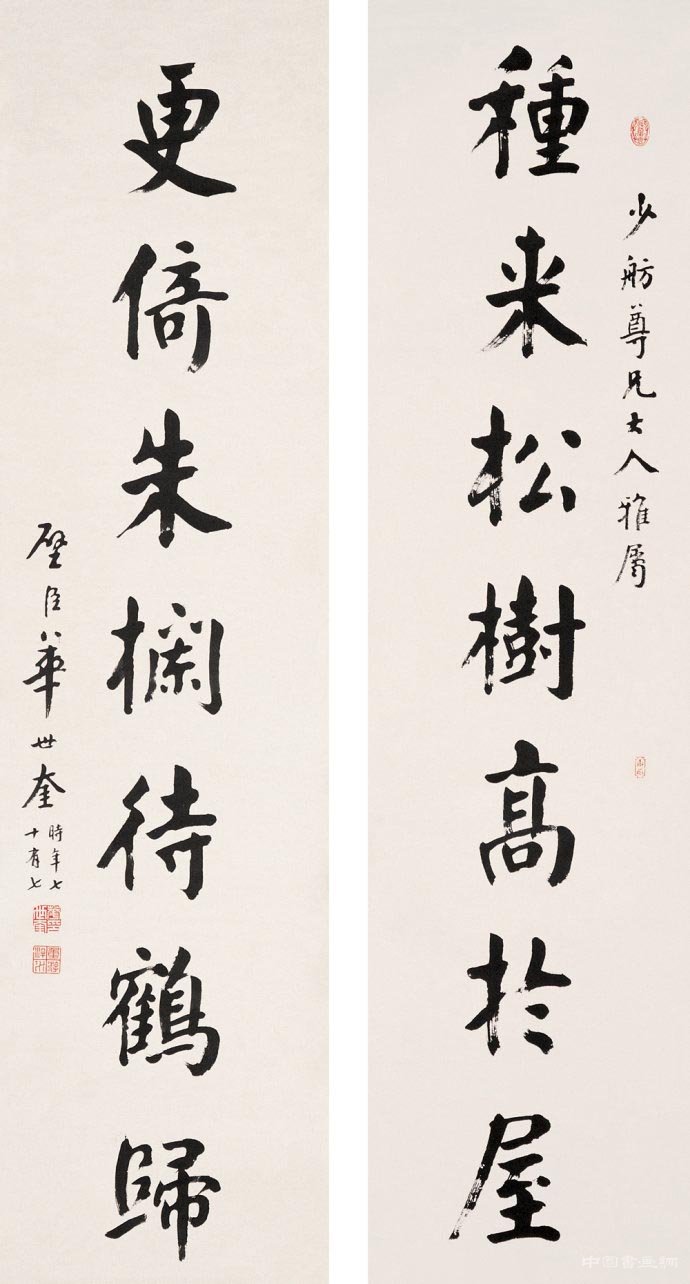 少舫尊兄大人雅属
種来松樹高於屋
更倚朱欄待鶴歸
壁臣華世奎
時年七
十有七
中国書画網